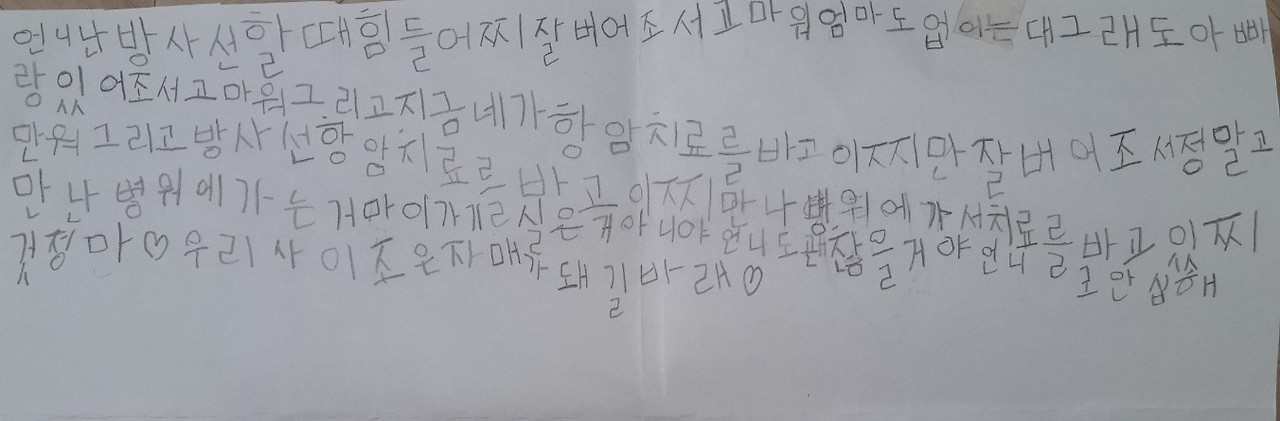 언니난 방사선할 때힘들어찌 잘버어조서고마워엄마도업이는대그래도아빠
랑있어조서고마워그리고지금네가항암치료를바고이찌만잘버어조서정말고
만워그리고방사선항암치료르바고이찌만나병워에가서치료르바고있찌
만나병워에가는거마이가기르실은게아니야언니도괜찮을거야언니르
걱정마♡우리사이조은자매가돼길바래♡
로안십해